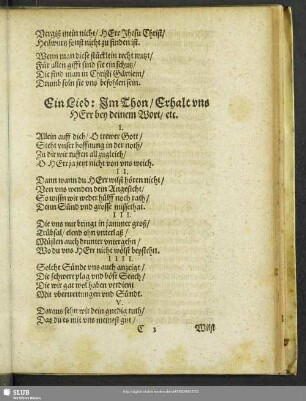 Vergiß mein nicht / HErr Jhesu Christ /
Heilwurtz sonst nicht zu finden ist.
Wenn man diese stücklein recht nutzt /
Für allen gifft sind sie ein schutz /
Die find man in Christi Gärtlein /
Drumb soln sie uns befohlen sein.
Ein Lied: Im Thon / Erhalt vns
HErr bey deinem Wort / etc.
I.
Allein auff dich / O trewer Gott /
Steht vnser hoffnung in der noth /
Zu dir wir ruffen all zugleich /
O HErr ja jetzt nicht von vns weich.
II.
Dann wann du HErr wilst hören nicht /
Von vns wenden dein Angesicht /
So wissn wir weder hülff noch rath /
Denn Sünd vnd grosse missethat.
III.
Die vns nur bringt in jammer groß /
Trübsal / elend ohn vnterlaß /
Müsten auch drunter vntergehn /
Wo du vns HErr nicht wölst beystehn.
IIII.
Solche Sünde vns auch anzeigt /
Die schwere plag vnd böse Seuch /
Die wir gar wol haben verdient
Mit vbertrettungen vnd Sündt.
V.
Daraus sehn wir dein gnedig ruth /
Das du es mit vns meinest gut /
C 3
Wilst
SLUB
Wir führen Wissen.